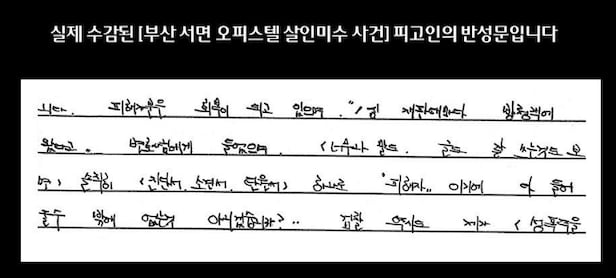 실제 수감된 [부산 서면 오피스텔 살인미수 사건] 피고인의 반성문입니다
니다. 피해자분은 회복이 되고 있으며, "1심 재판때마다 방청객에
왔다고. 변호사님에게 들었으며, <너무나 말도, 글도 잘 쓰는것도 보
면> 솔직히 <진단서, 소견서, 탄원서> 하나로 "피해자" 이기에 다 들어
줄수 밖에 없는것 아니겠습니까?.. 검찰 역시도 제가 <성폭력을